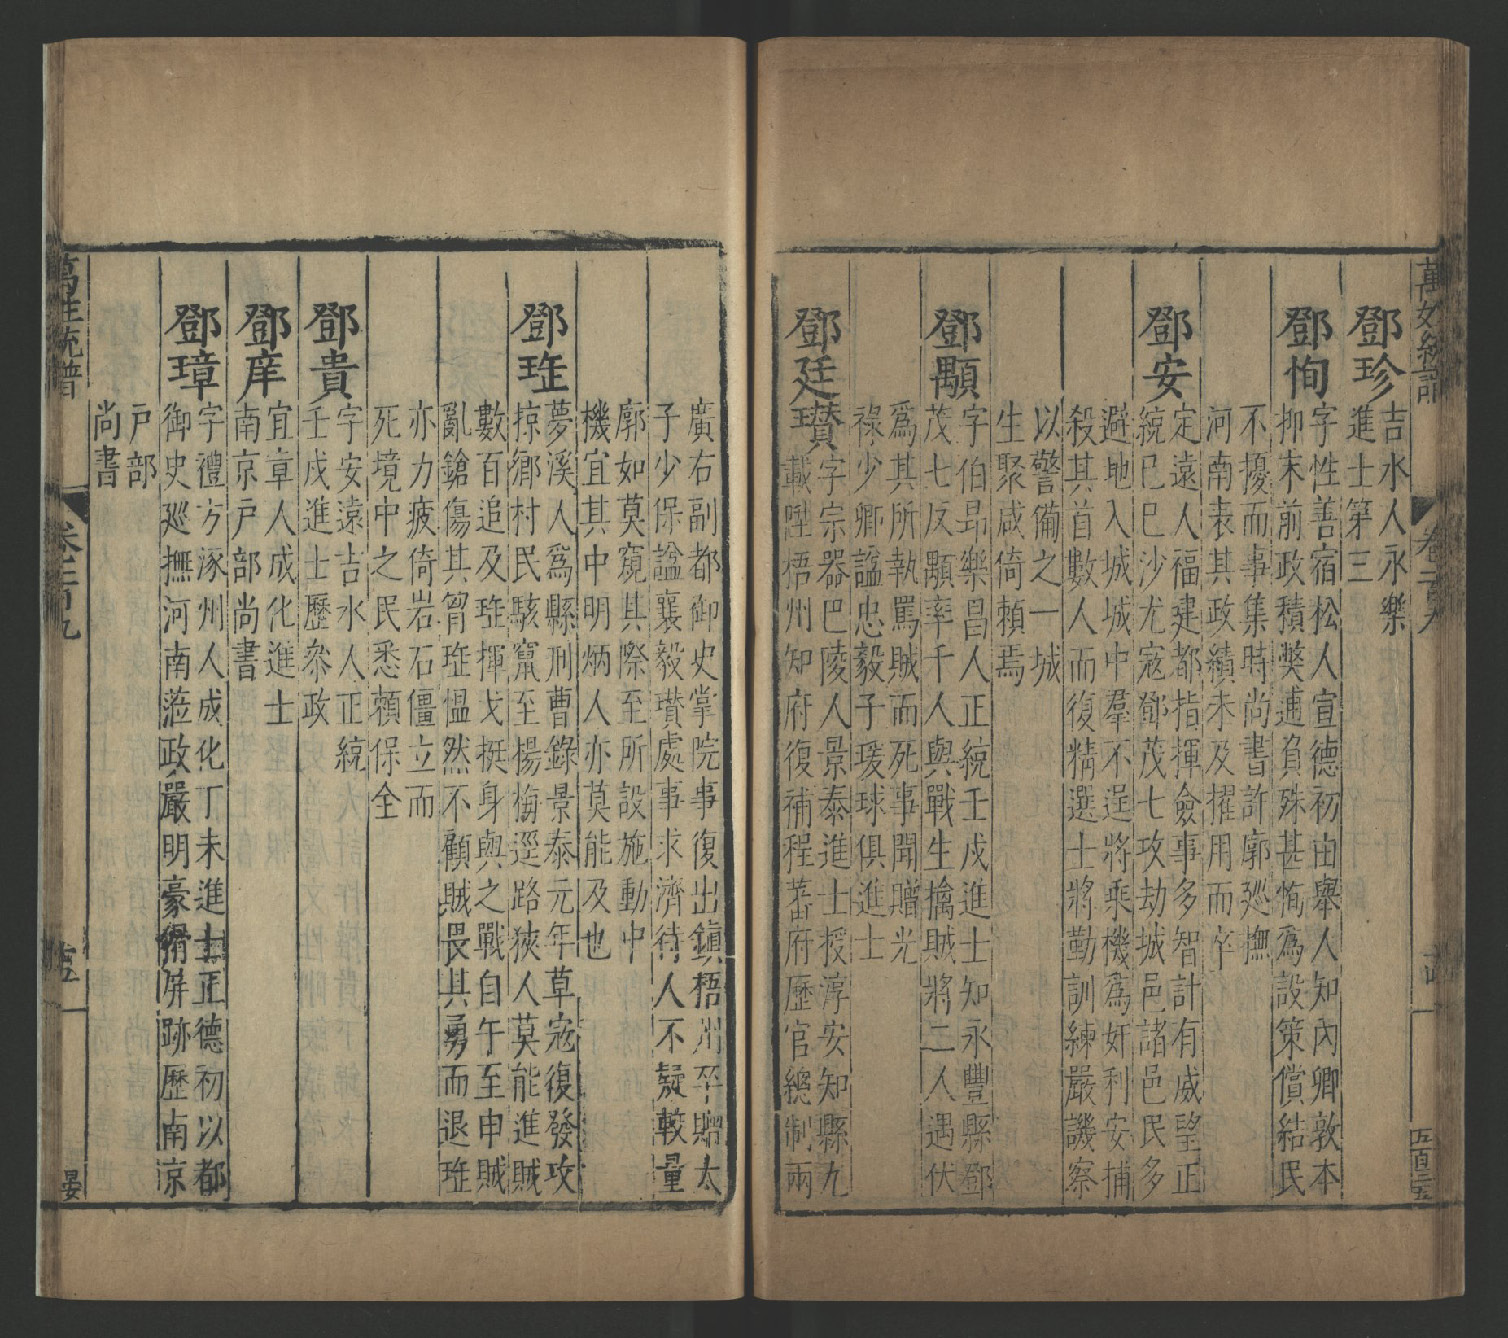 萬姓統譜
卷一百九
十四
五百三五
鄧珍
吉水人永樂
進士第三
鄧恂
字性善宿松人宣德初由舉人知內鄉敦本
抑末前政積獘逋負殊甚恂為設策償結民
不擾而事集時尚書許廓廵撫
河南表其政績未及擢用而卒
鄧安
定遠人福建都指揮僉事多智計有威望正
統己巳沙尤寇鄧茂七攻劫城邑諸邑民多
避地入城城中羣不逞將乘機為奸利安捕
殺其首數人而復精選士將勤訓練嚴譏察
以警備之一城
生聚咸倚賴焉
鄧顒
字伯昂樂昌人正統壬戌進士知永豐縣鄧
茂七反顒率千人與戰生擒賊將二人遇伏
為其所執罵賊而死事聞贈光
祿少卿諡忠毅子瑗球俱進士
鄧廷瓚
字宗器巴陵人景泰進士授淳安知縣九
載陞梧州知府復補程蕃府歷官總制兩
廣右副都御史掌院事復出鎮梧州卒贈太
子少保諡襄毅瓚處事求濟待人不疑較量
廓如莫窺其際至所設施動中
機宜其中明炳人亦莫能及也
鄧珄
夢溪人為縣刑曹錄景泰元年草寇復發攻
掠鄉村民駭竄至楊梅逕路狹人莫能進賊
數百追及珄揮戈挺身與之戰自午至申賊
亂鎗傷其胷珄愠然不顧賊畏其勇而退珄
亦力疲倚岩石僵立而
死境中之民悉賴保全
鄧貴
字安遠吉水人正統
壬戌進士歷叅政
鄧庠
宜章人成化進士
南京戶部尚書
鄧璋
字禮方涿州人成化丁未進士正德初以都
御史廵撫河南蒞政嚴明豪猾屏跡歷南京
戶部
尚書
萬姓統譜
卷一百九
十五
晏